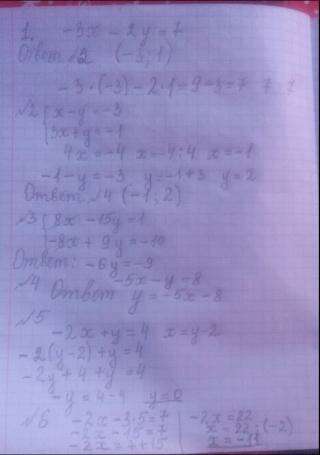 1. -3x - 2y = 7
Ответ №2 (-3; 1)
-3·(-3) - 2·1 = 9 - 2 = 7
№2 { x - y = -3
3x + y = -1
4x = -4 x = -4:4 x = -1
-1 - y = -3 y = -1 + 3 y = 2
Ответ №4 (-1; 2)
№3 { 8x - 15y = 1
-8x + 9y = -10
Ответ: -6y = -9
№4 -5x - y = 8
Ответ y = -5x - 8
№5
-2x + y = 4 x = y - 2
-2(y - 2) + y = 4
-2y + 4 + y = 4
-y = 4 - 4 y = 0
№6 -2x - 3·5 = 7
-2x - 15 = 7
-2x = 7 + 15
-2x = 22
x = 22:(-2)
x = -11